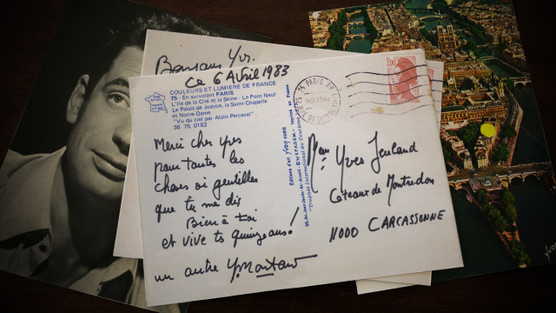 Bonjour Yves.
Ce 6 Avril 1983
COULEURS ET LUMIERE DE FRANCE
75 - En survolant PARIS
L'Ile de la Cité et la Seine - Le Pont Neuf
Le Palais de Justice, la Saint Chapelle
et Notre Dame
"Vu du ciel par Alain Perceval"
38 75 0182
Merci cher Yves
pour toutes les
choses si gentilles
que tu me dis
Bien à toi
et vive tes quinze ans!
un autre Y. Montand
75 PARIS
2,00
Yves Jeuland
Coteaux de Montredon
11000 CARCASSONNE